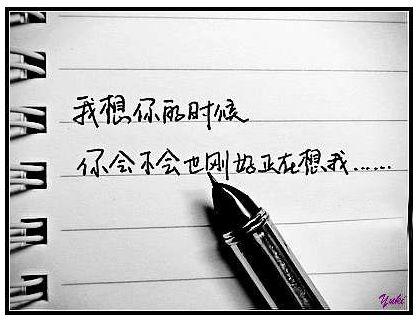 我想你的时候
你会不会也刚好正在想我……
Yuki